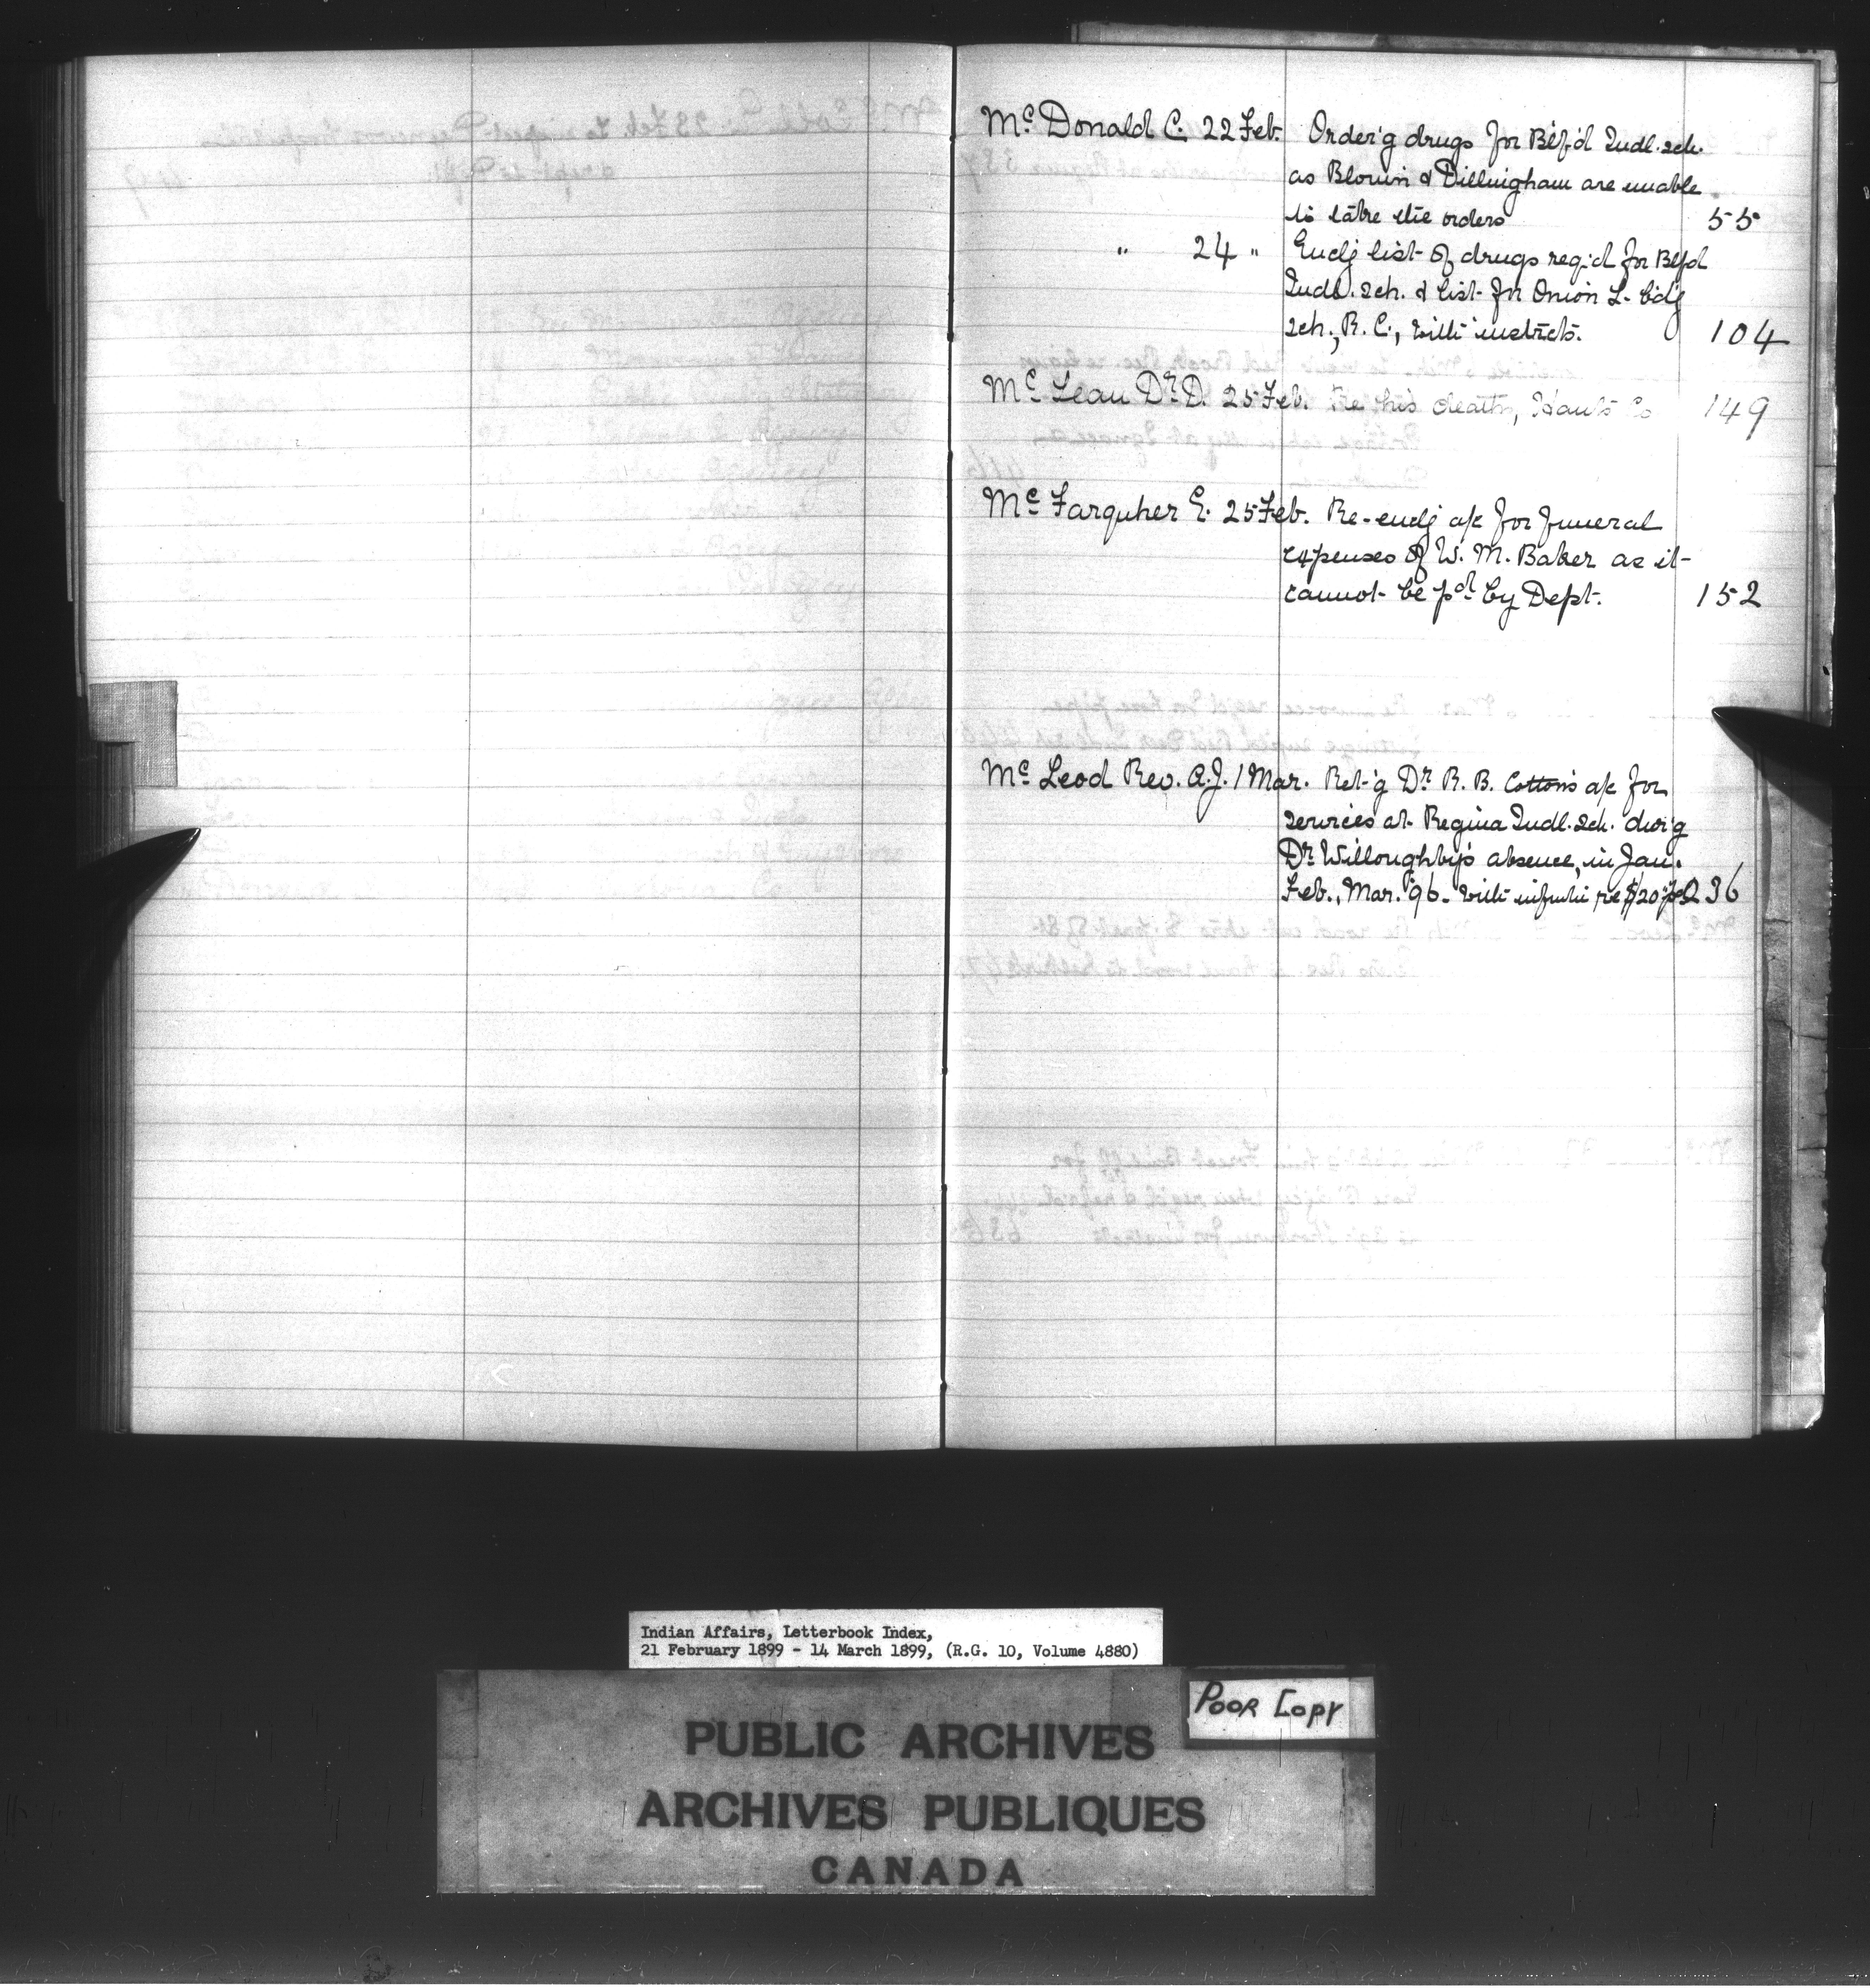 Mc Donald C. 22 Feb. Order'g drugs for Blf'd Indl. sch.
as Blouin & Dillingham are unable
to take the orders 55
" 24 " Encl'g list of drugs req'd for Blfd
Indl. sch. & list for Onion L. b'd'g
sch., R. C., with instrcts. 104
Mc Lean Dr D. 25 Feb. Re his death, Hants Co 149
Mc Farquher E. 25 Feb. Re-encl'g a/c for funeral
expenses of W. M. Baker as it
cannot be pd by Dept. 152
Mc Leod Rev. A.J. 1 Mar. Ret'g Dr R. B. Cotton's a/c for
services at Regina Indl. sch. dur'g
Dr Willoughby's absence, in Jan.
Feb., Mar. '96. with re $20 236
Indian Affairs, Letterbook Index,
21 February 1899 - 14 March 1899, (R.G. 10, Volume 4880)
POOR COPY
PUBLIC ARCHIVES
ARCHIVES PUBLIQUES
CANADA